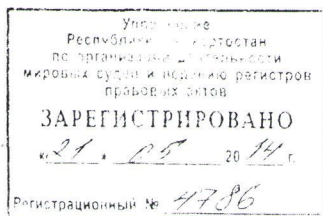 Республики
по организации деятельности
мировых судей и ведению регистров
правовых актов
ЗАРЕГИСТРИРОВАНО
«21» 05 2014 г.
Регистрационный № 4786